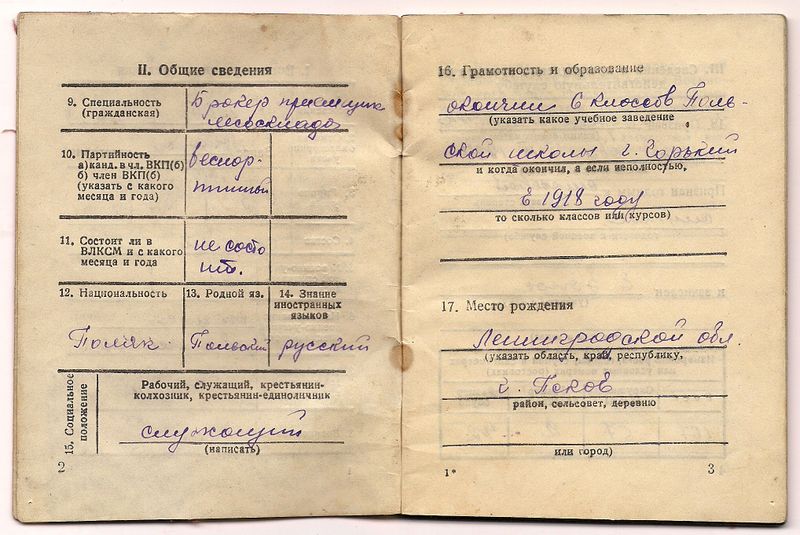 II. Общие сведения
9. Специальность
(гражданская)
Бракер приемщик
лесосклада
10. Партийность
а) канд. в чл. ВКП(б)
б) член ВКП(б)
(указать с какого
месяца и года)
беспар-
тийный
11. Состоит ли в
ВЛКСМ и с какого
месяца и года
не состо
ит.
12. Национальность
Поляк
13. Родной яз.
Польский
14. Знание
иностранных
языков
русский
15. Социальное
положение
Рабочий, служащий, крестьянин-
колхозник, крестьянин-единоличник
служащий
(написать)
2
16. Грамотность и образование
окончил 6 классов Поль-
(указать какое учебное заведение
ской школы г. Горький
и когда окончил, а если неполностью,
в 1918 году
то сколько классов или курсов)
17. Место рождения
Ленинградской обл.
(указать область, край, республику,
г. Псков
район, сельсовет, деревню
или город)
1*
3